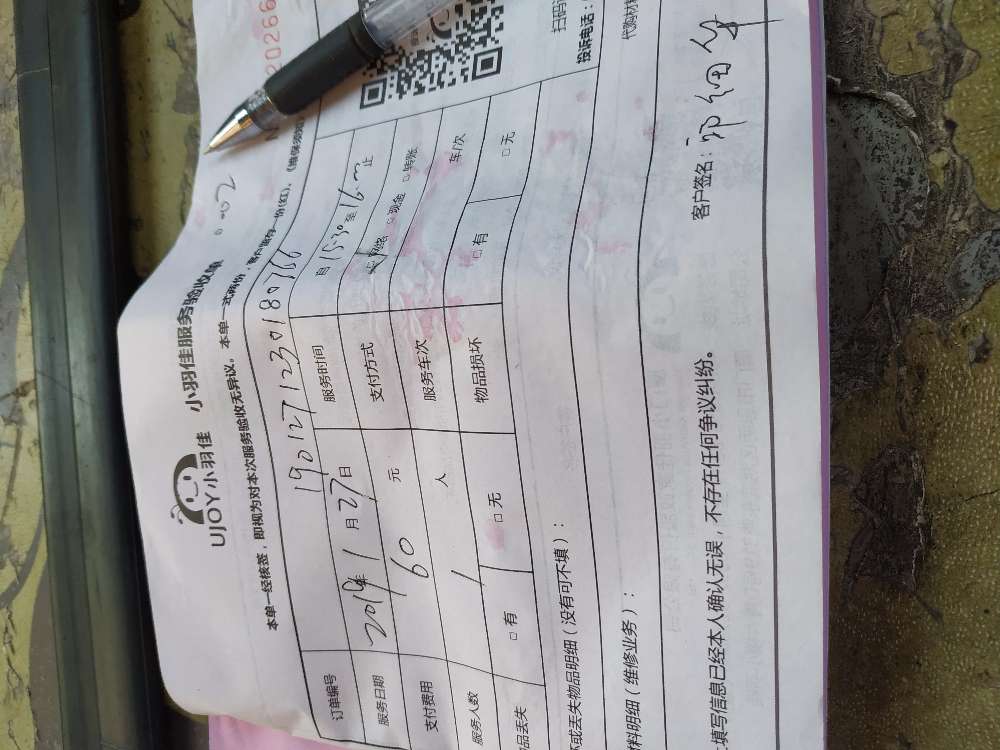 UJOY小羽佳 小羽佳服务验收单
20266
0002
本单一经核签，即视为对本次服务验收无异议。本单一式两份，客户留存一份(红)，
订单编号 1901271230180766
服务日期 2019年1月27日 服务时间 自15:30至16:00止
支付费用 60元 支付方式 网络 □现金 □转账
服务人数 1人 服务车次 车/次
品丢失 □有 □无 物品损坏 □有 □无
扫码
投诉电话：
坏或丢失物品明细（没有可不填）：
料明细（维修业务）：
代购材
填写信息已经本人确认无误，不存在任何争议纠纷。
客户签名：